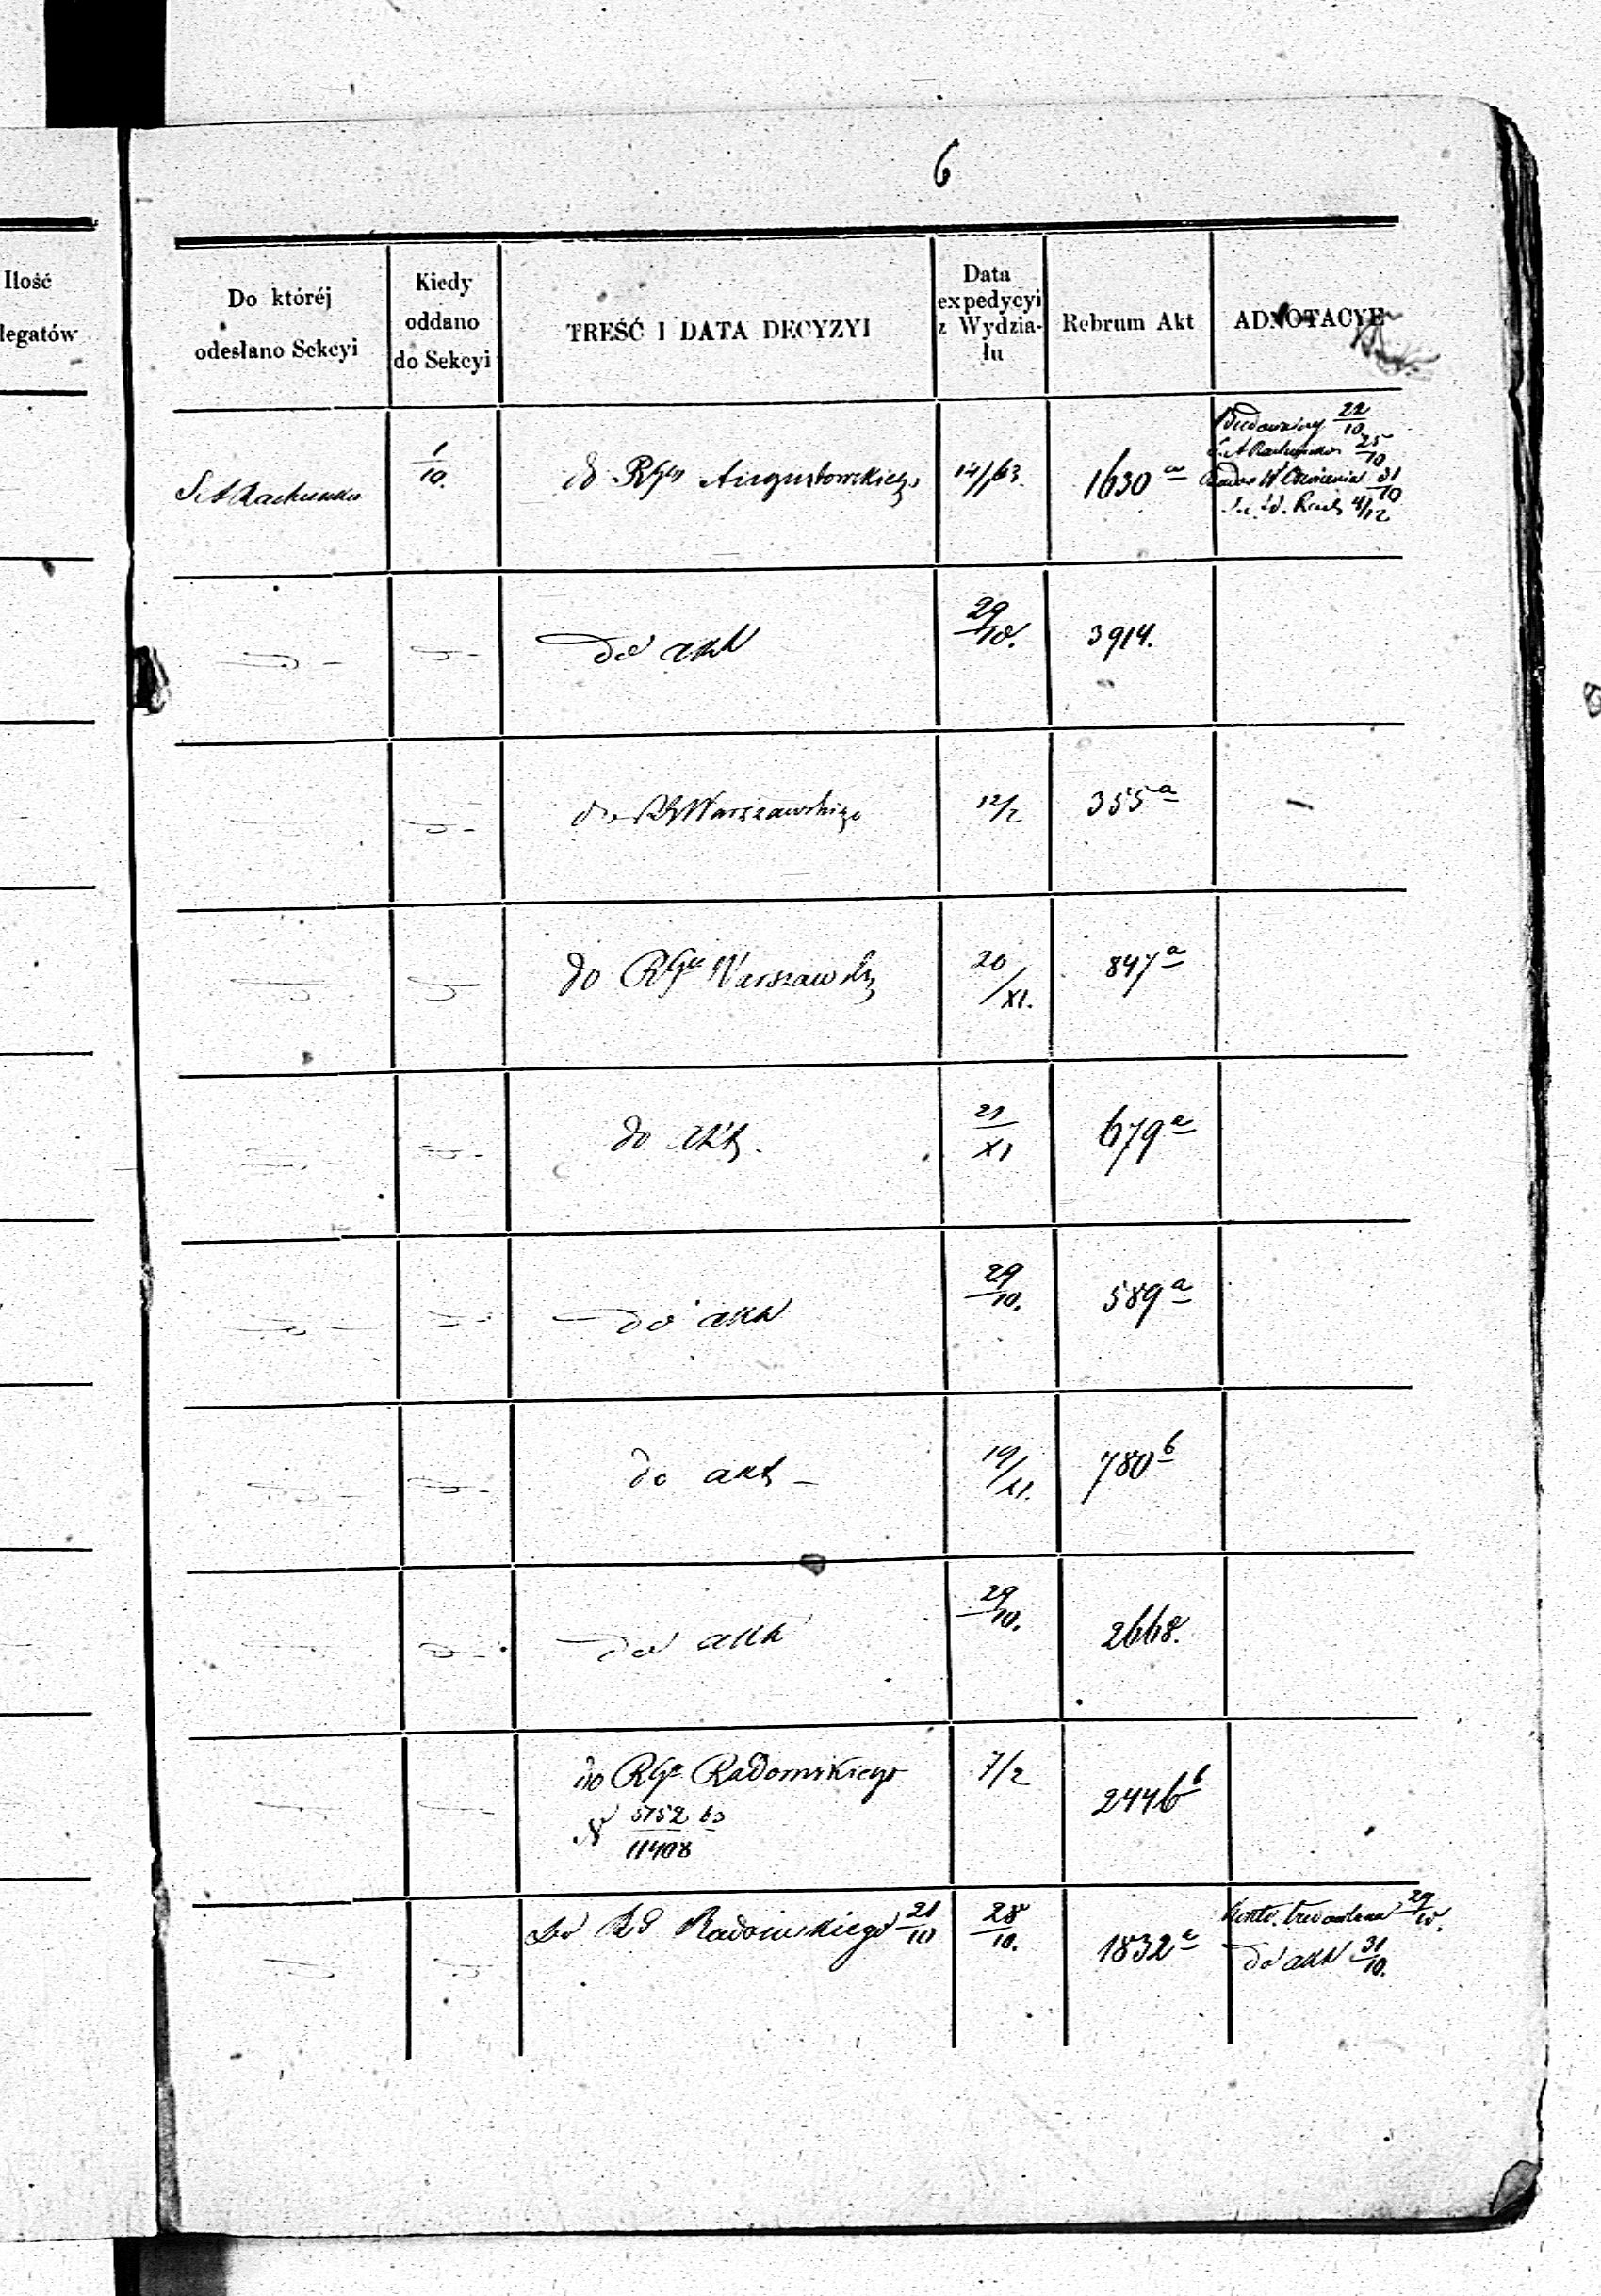 6
Ilość
legatów
Do któréj
odesłano Sekcyi
Kiedy
oddano
do Sekcyi
TREŚĆ I DATA DECYZYI
Data
expedycyi
z Wydzia-
łu
Rebrum Akt
ADNOTACYE
S. A Rachunko
1/10.
do RGu Augustowskiego
14/1 63.
1630 a
Budowniczy 22/10
S. A Rachunko 25/10
31/10
4/12
do akt
29/10.
3914.
do RG Warszawskiego
12/2
355 a
do RGu Warszawsk
20/XI.
847 a
do akt.
21/XI
679 a
do akt
29/10.
589 a
do akt
19/XI.
780 b
do akt
29/10.
2668.
do RGu Radomskiego
N 5752 63
11408
7/2
2446 b
do RG Radomskiego 21/10
28/10.
1832 a
29/10.
do akt 31/10.